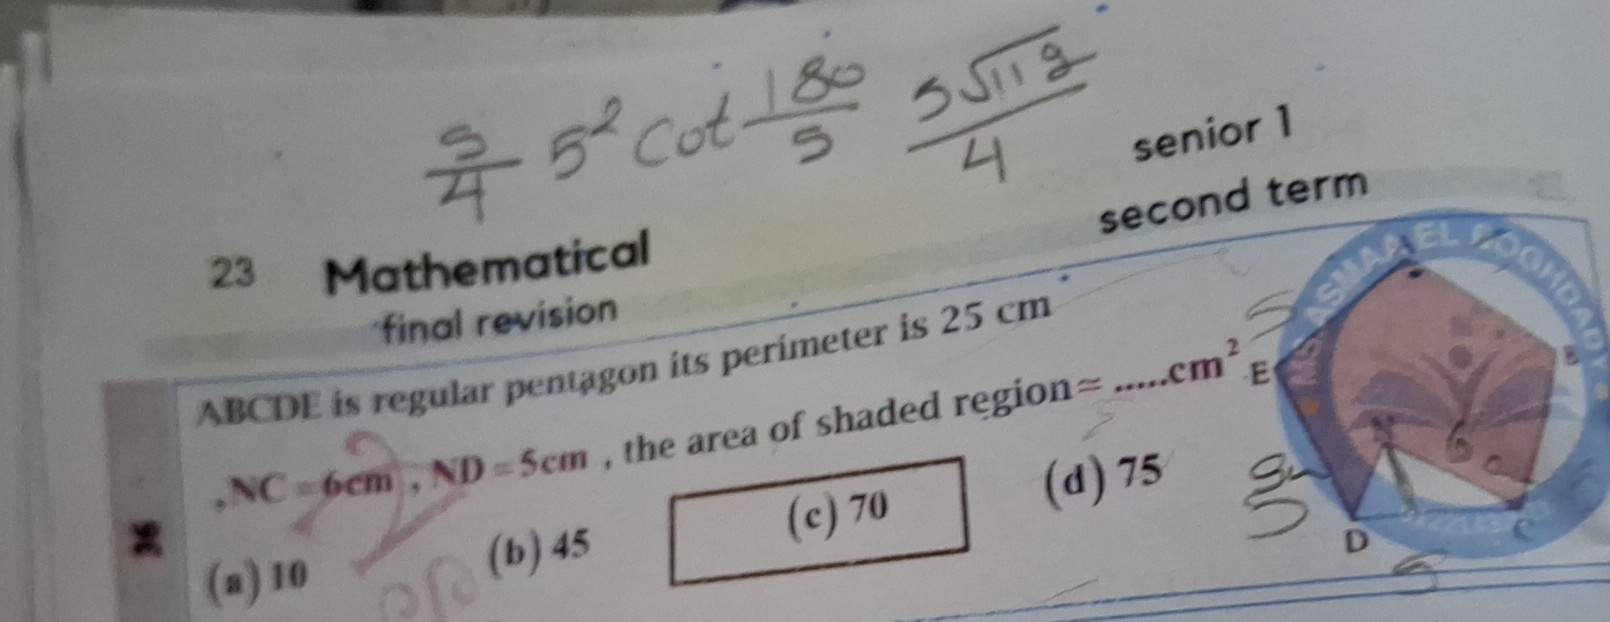 5/4 5² cot 180/5 5√119/4
senior 1
second term
23 Mathematical
final revision
ABCDE is regular pentagon its perimeter is 25 cm
,NC = 6cm , ND = 5cm , the area of shaded region ≃ .....cm²
(a) 10 (b) 45 (c) 70 (d) 75
ASMAA EL BOGHDADY
5
E
B
N
6
5
D
C
5
36